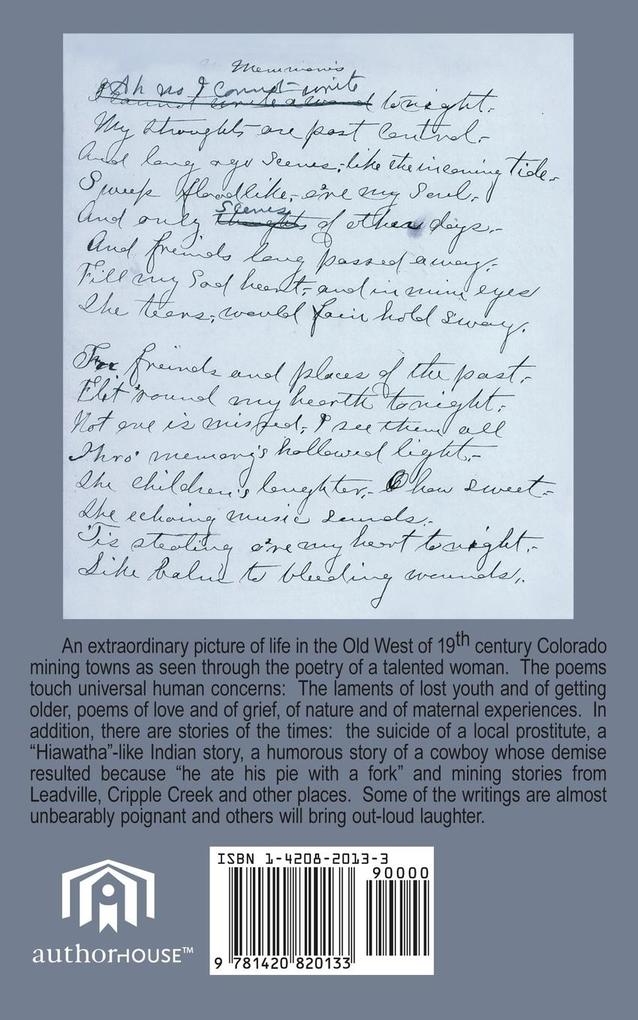 Memories
Ah no I cannot write
I cannot write a word tonight.
My thoughts are past control.
And long ago scenes, like the incoming tide
Sweep floodlike, o're my soul.
scenes
And only thoughts of other days.
And freinds long passed away,
Fill my sad heart, and in mine eyes
The tears, would fain hold sway.
For freinds and places of the past,
Flit 'round my hearth tonight,
Not one is missed, I see them all
Thro' memory's hallowed light,
The children's laughter, O how sweet
The echoing music sounds,
'Tis stealing o're my heart tonight,
Like balm to bleeding wounds,
An extraordinary picture of life in the Old West of 19th century Colorado
mining towns as seen through the poetry of a talented woman. The poems
touch universal human concerns: The laments of lost youth and of getting
older, poems of love and of grief, of nature and of maternal experiences. In
addition, there are stories of the times: the suicide of a local prostitute, a
“Hiawatha”-like Indian story, a humorous story of a cowboy whose demise
resulted because “he ate his pie with a fork” and mining stories from
Leadville, Cripple Creek and other places. Some of the writings are almost
unbearably poignant and others will bring out-loud laughter.
authorHOUSE™
ISBN 1-4208-2013-3
90000
9 781420 820133